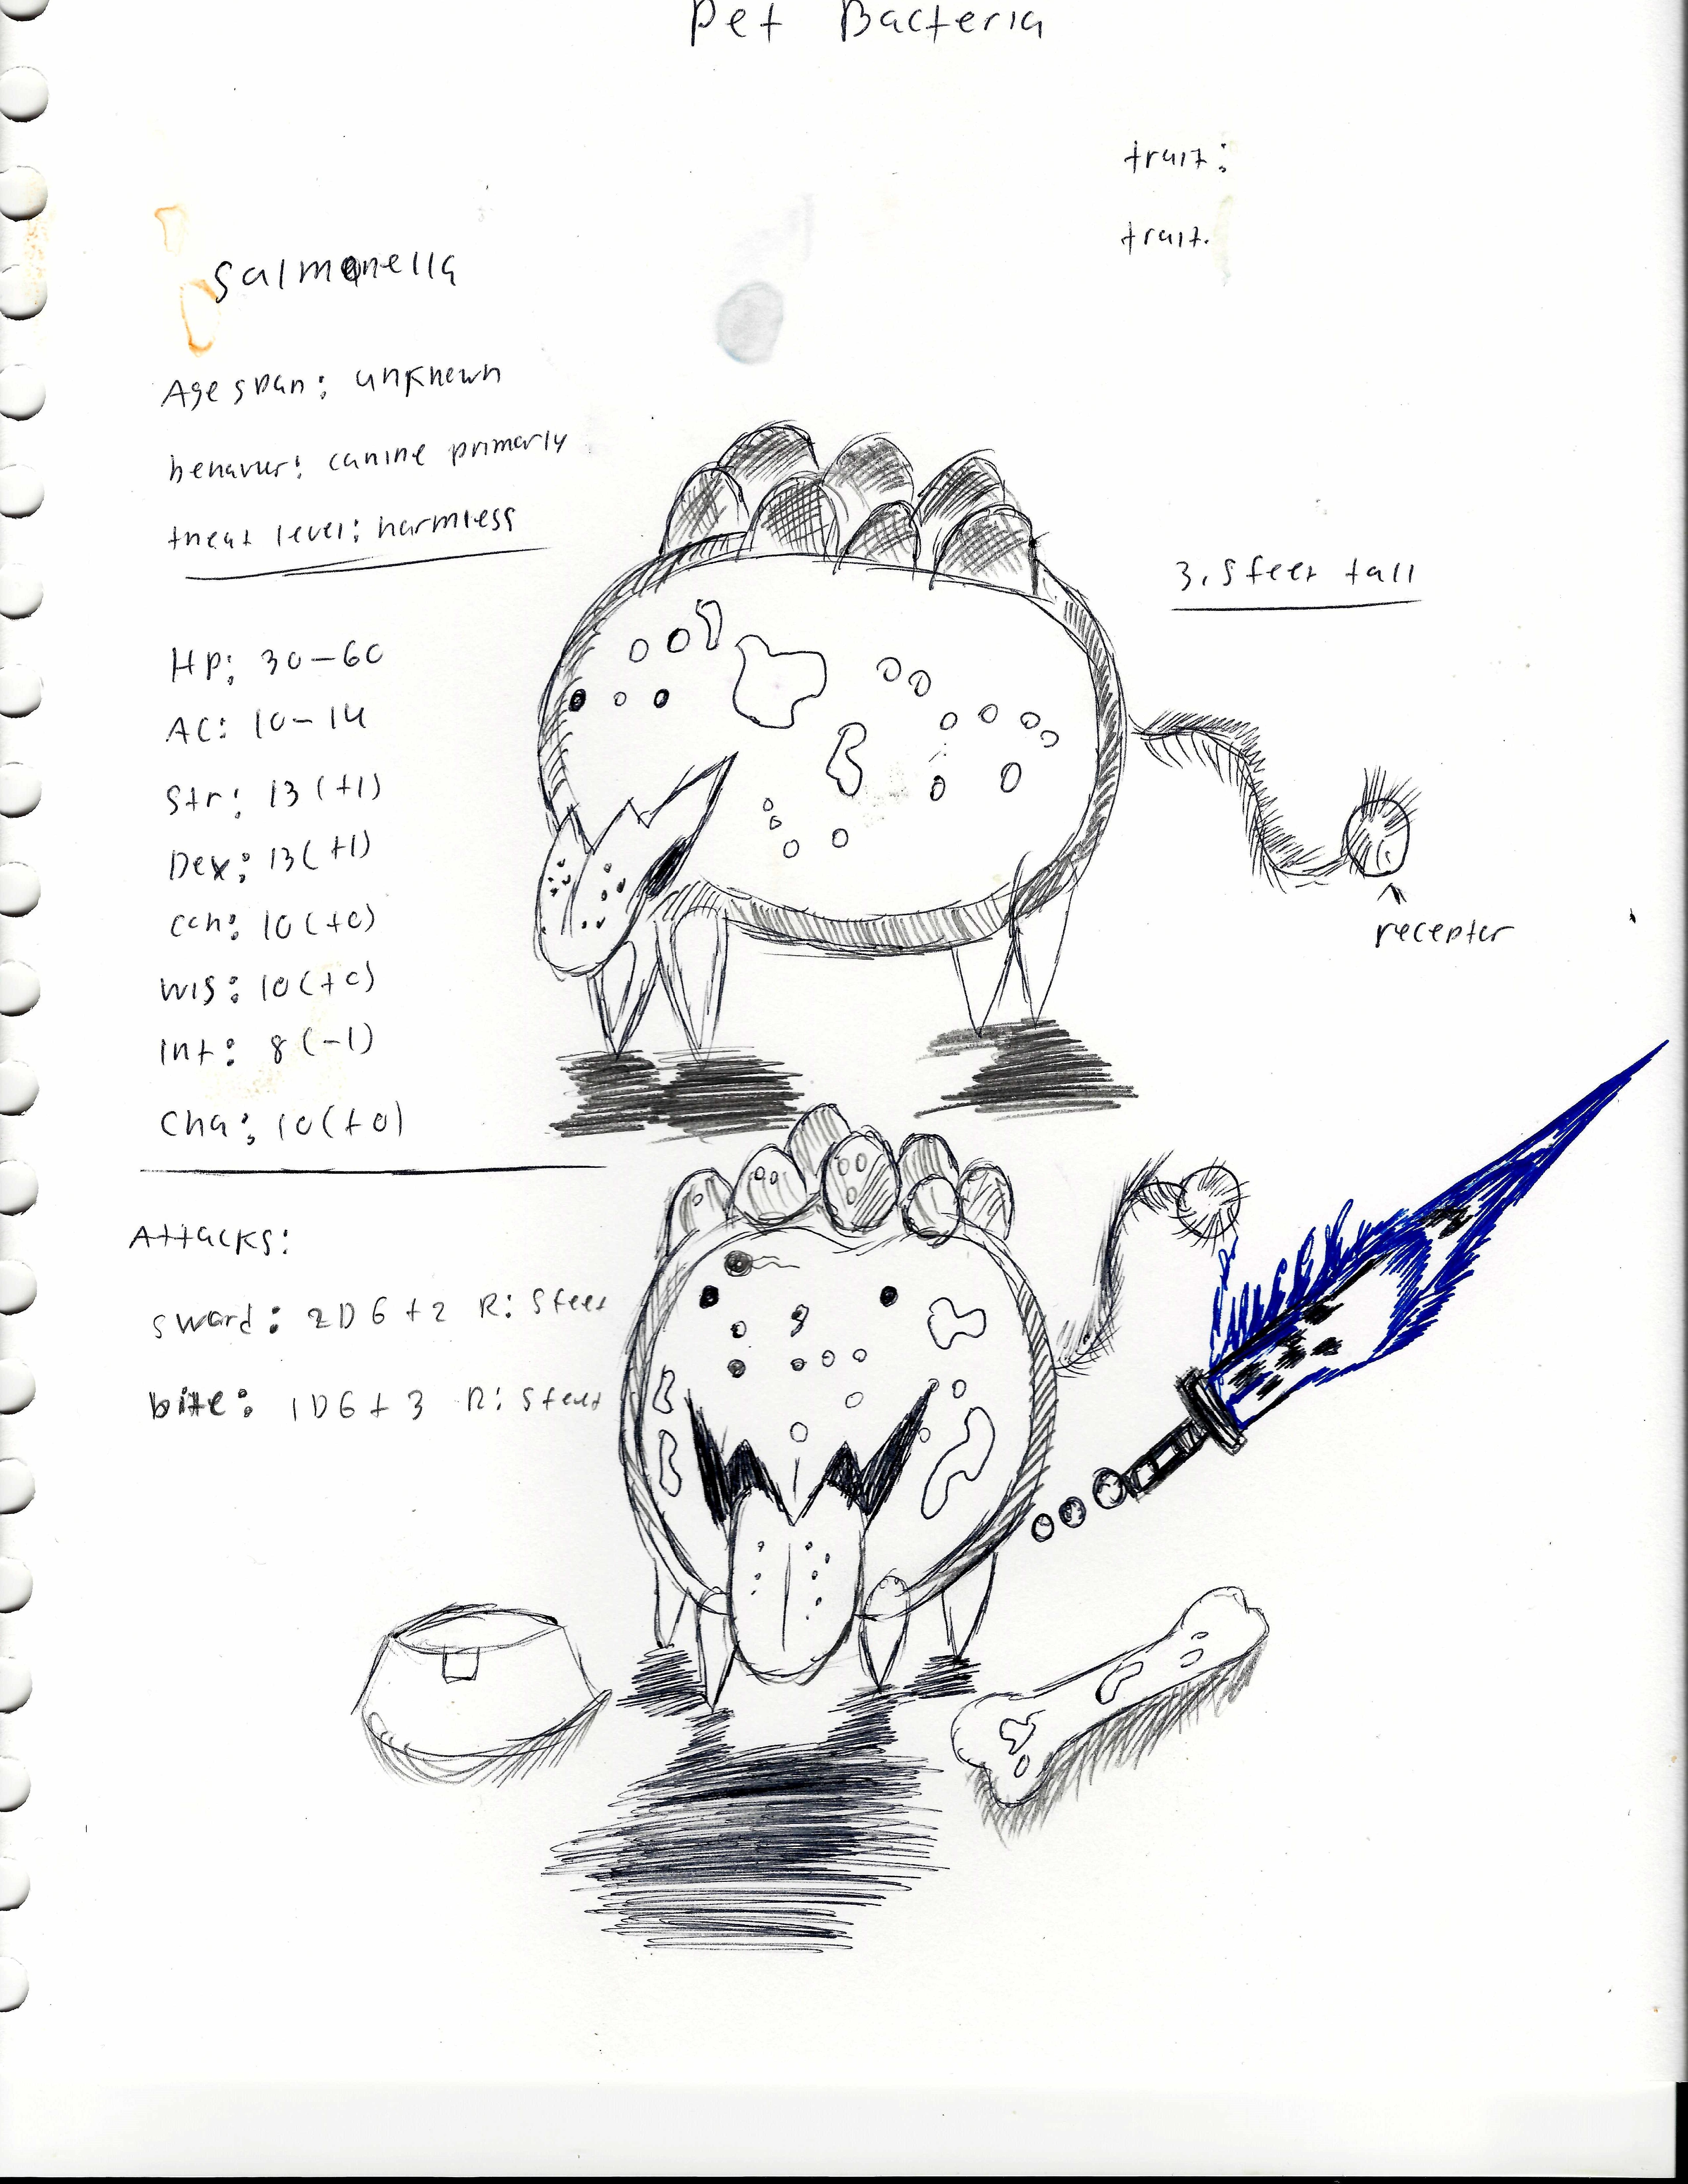 Pet Bacteria
trait:
trait.
Salmonella
Age span: unknown
behavur: canine primarly
threat level: harmless
3.5 feet tall
HP: 30-60
AC: 10-14
Str: 13 (+1)
Dex: 13 (+1)
con: 10 (+0)
WIS: 10 (+0)
Int: 8 (-1)
Cha: 10 (+0)
receptor
Attacks:
sword: 2D6+2 R: 5 feet
bite: 1D6+3 R: 5 feet